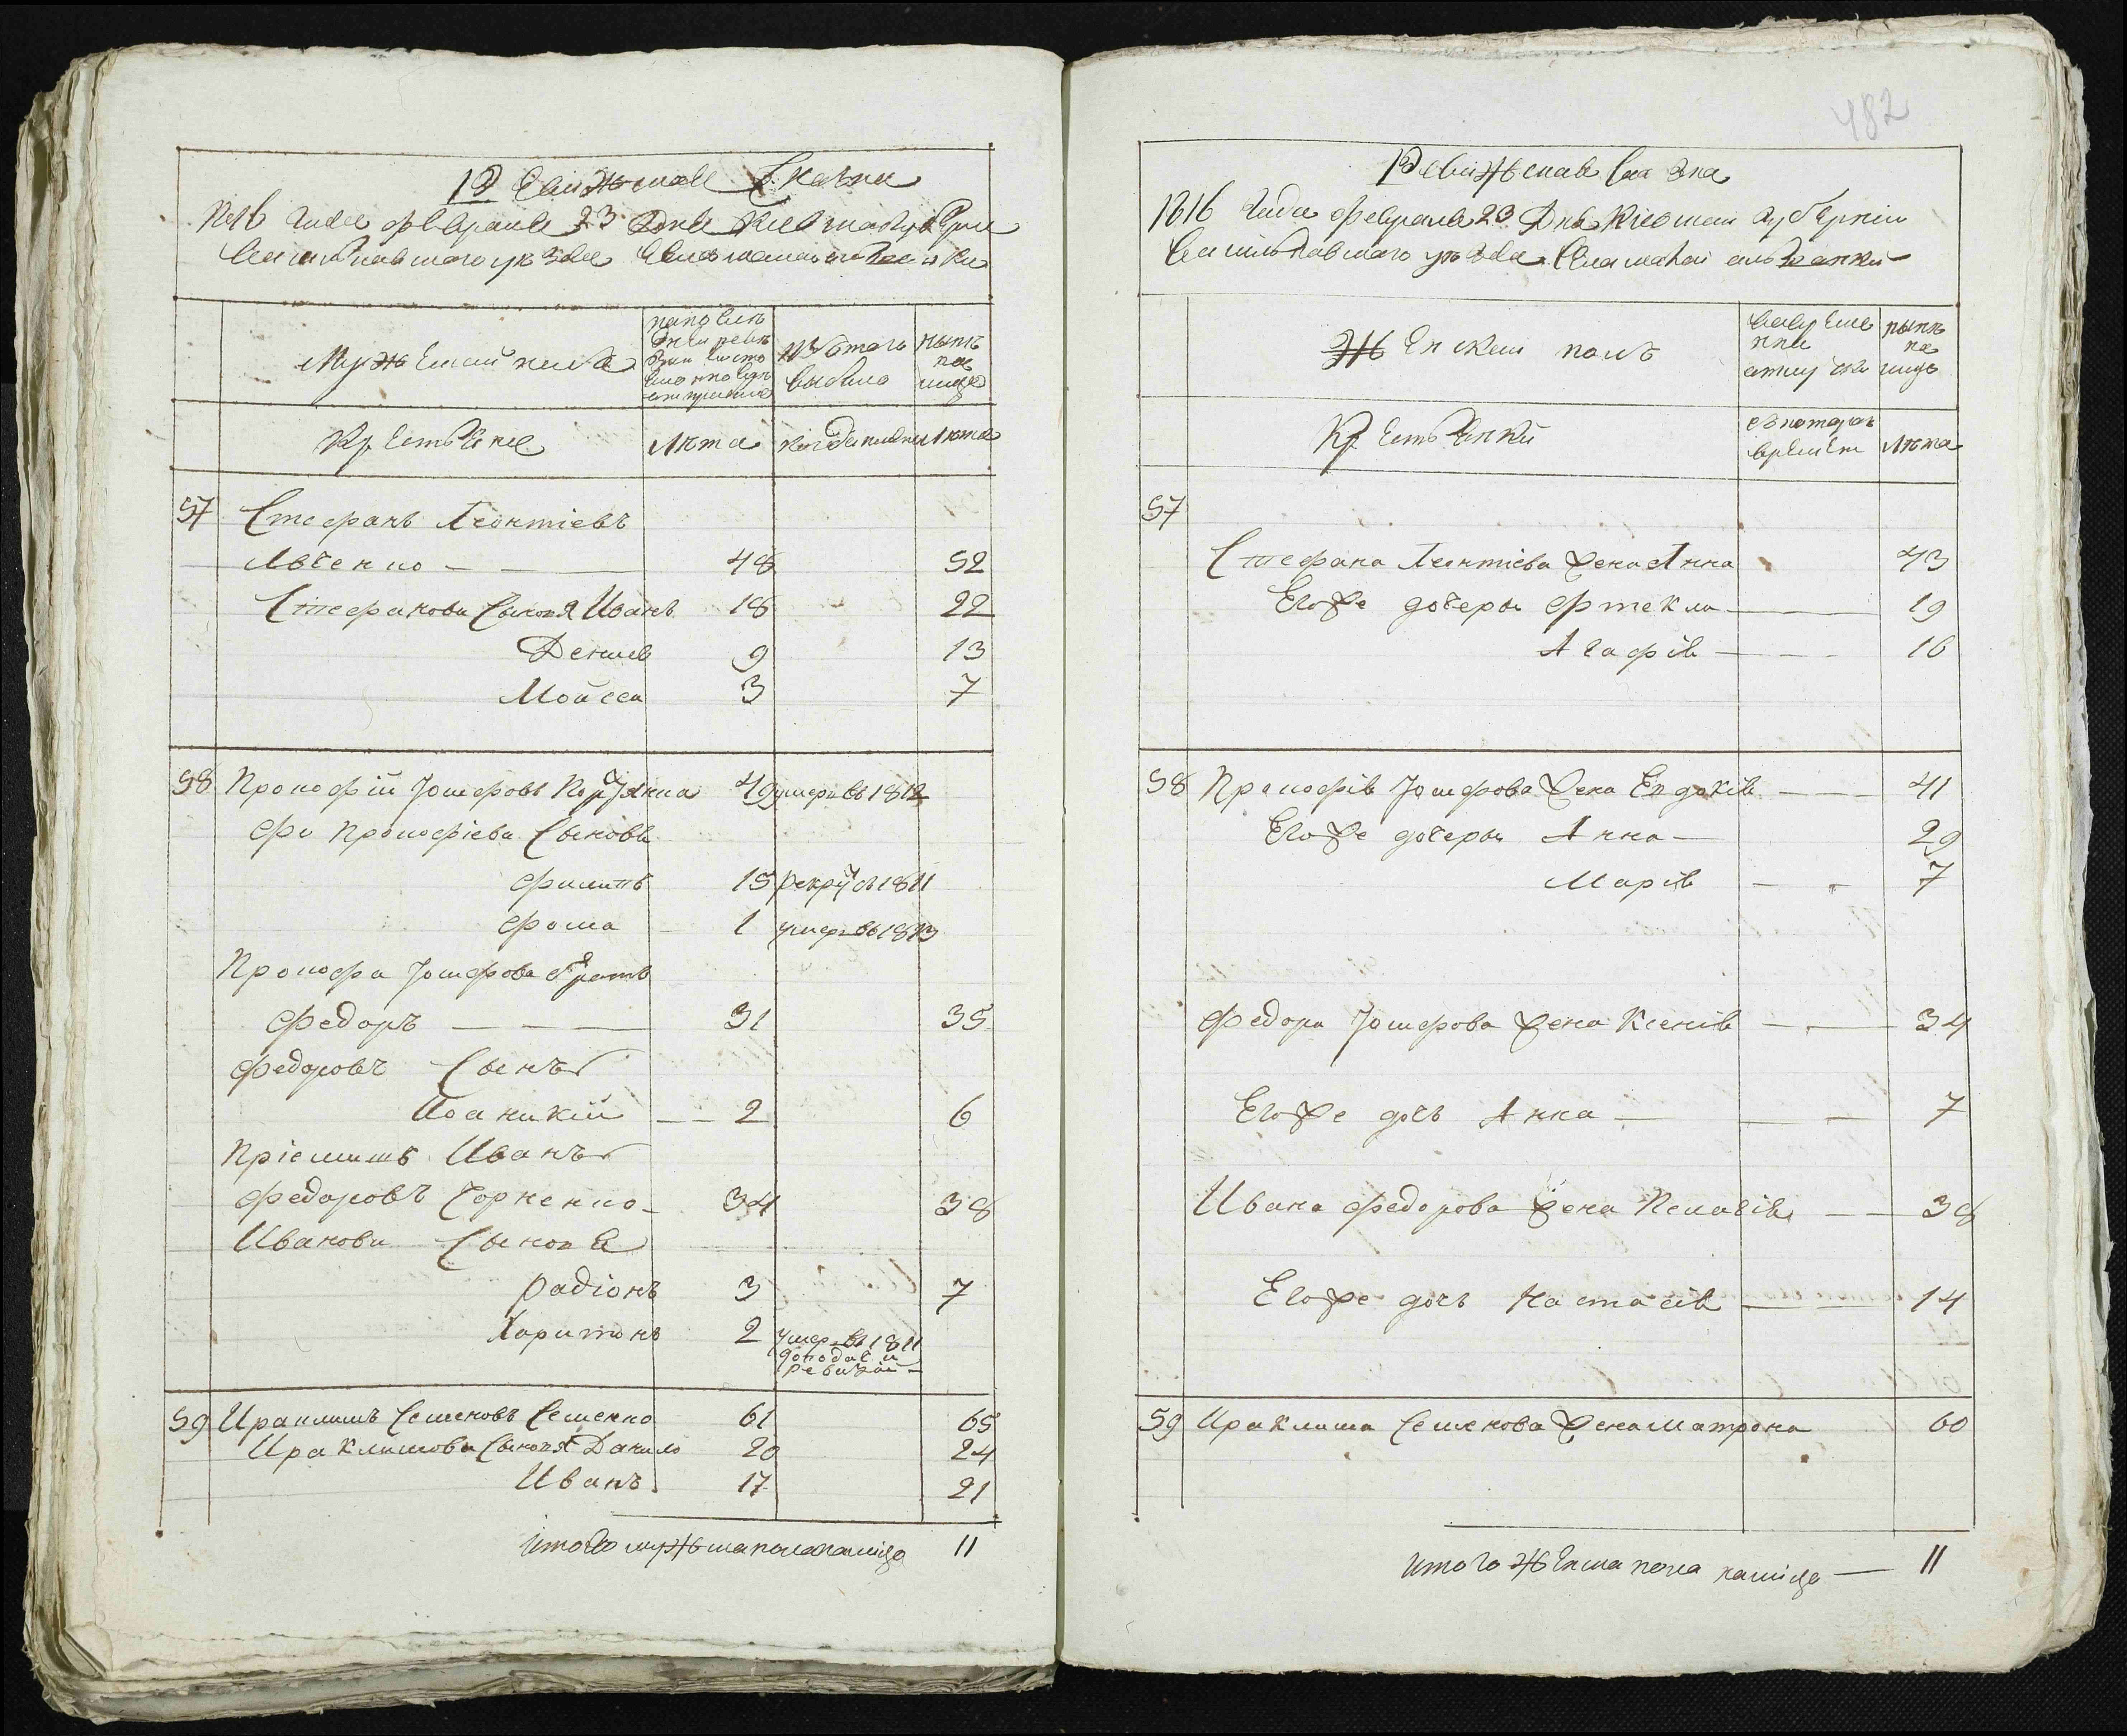 Ревижская Скаска
1816 Года февраля 23 Дня Киевской Губернии
Васильковского уезда
Мужеской полъ
по последней ревизии состояло и после оной прибыло
Изъ того выбыло
Ныне на лицо
Крестьяне
Лета
Когда именно
Лета
57 Стефанъ Леонтіевъ
Лвченко — 48 52
Стефанови Сыновя Иванъ 18 22
Денисъ 9 13
Мойсей 3 7
58 Прокофій Іосифовъ 49 умеръ въ 1812
Прокофіеви Сыновя
Филипъ 15 рекрут въ 1811
Фома 1 умеръ въ 1813
Прокофа Іосифова братъ
Федоръ — 31 35
Федоровъ Сынъ
Иоаникій — 2 6
Пріемышъ Иванъ
Федоровъ Чорненко 34 38
Иванови Сыновя
Радіонъ 3 7
Харитонъ 2 умеръ въ 1811 до подачи ревизіи
59 Ираклимъ Семеновъ Семенко 61 65
Ираклимови Сыновя Данило 20 24
Иванъ 17 21
Итого мужеска пола налицо 11
482
Ревижская Скаска
1816 Года февраля 23 Дня Кіевской Губерніи
Васильковскаго уезда
Женской полъ
во временной отлучке
ныне на лицо
Крестьянки
съ котораго времени
Лета
57
Стефана Леонтіева жена Анна 43
Его же дочеры Фтекла — 19
Агафія — 16
58 Прокофія Іосифова жена Евдокія — 41
Его же дочеры Анна — 29
Марія — 7
Федора Іосифова жена Ксенія — 34
Его же дочъ Анна — 7
Ивана Федорова жена Пелагія — 38
Его же дочъ Настасія — 14
59 Ираклима Семенова жена Матрона 60
Итого Женска пола налице — 11